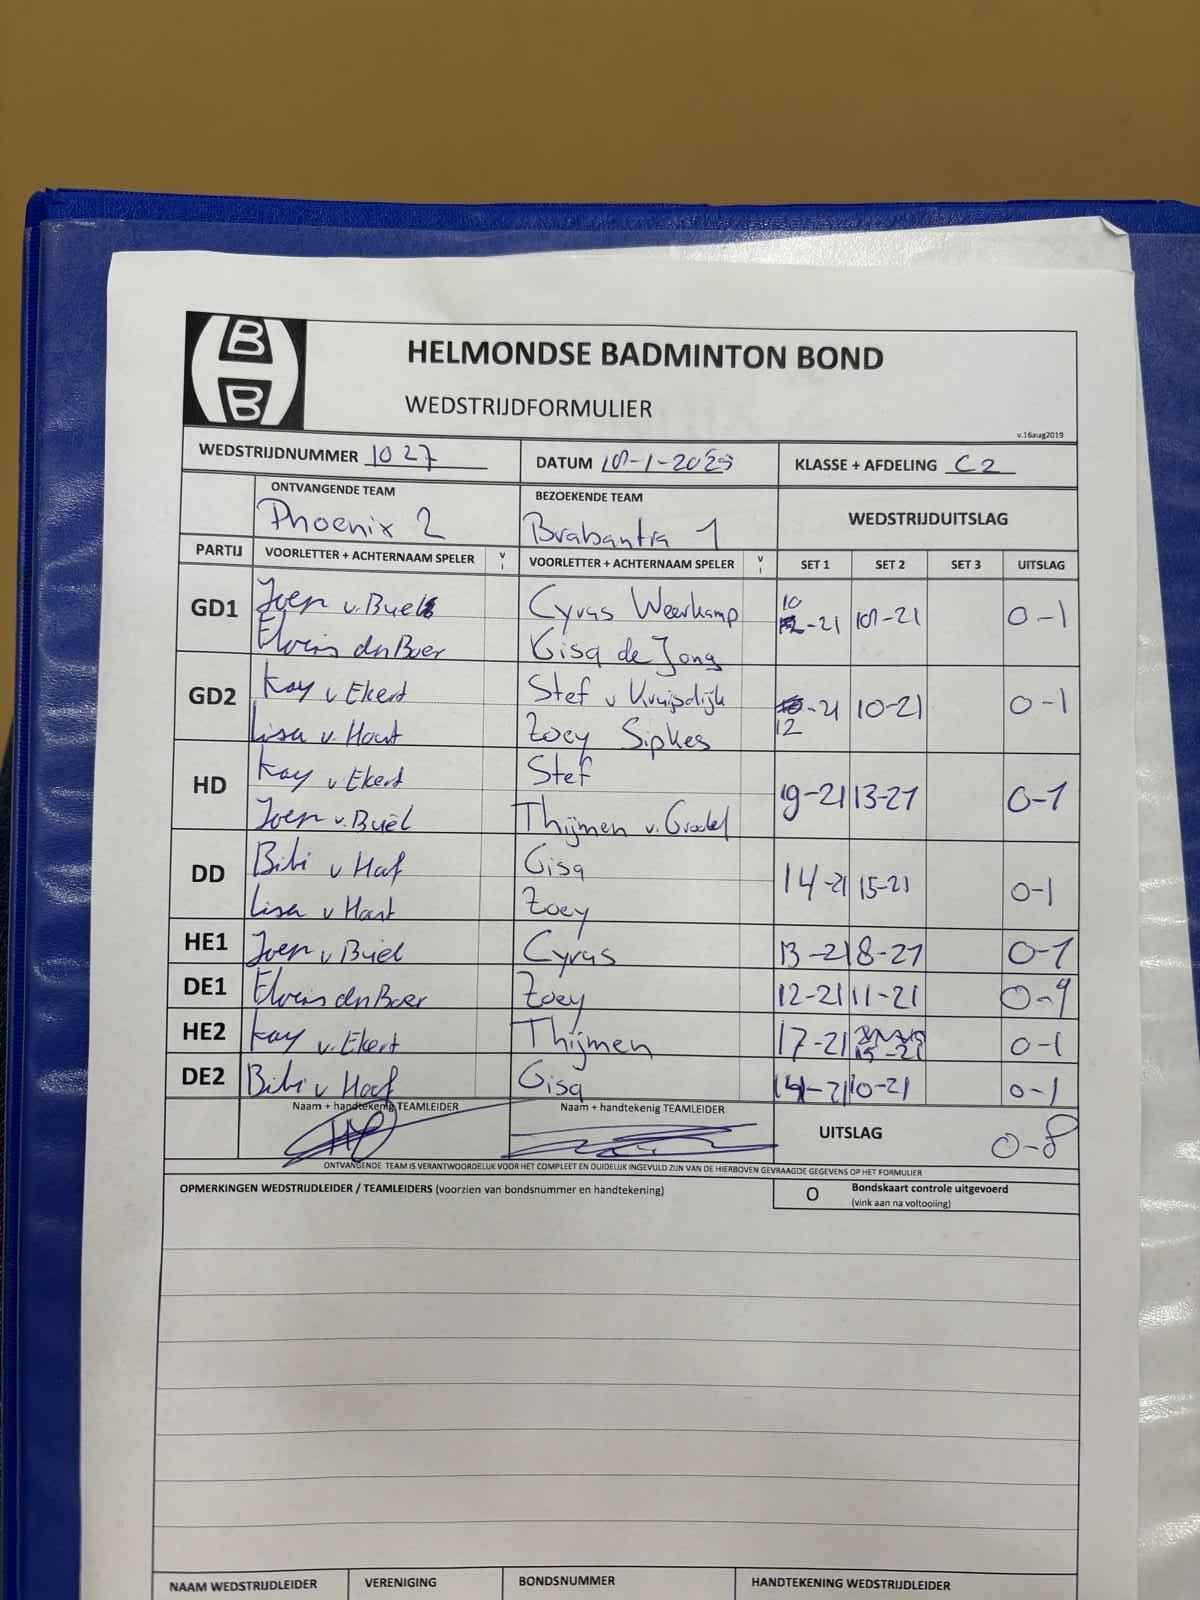 HELMONDSE BADMINTON BOND
WEDSTRIJDFORMULIER
v.16aug2019
WEDSTRIJDNUMMER 1027 DATUM -1-2025 KLASSE + AFDELING C2
ONTVANGENDE TEAM BEZOEKENDE TEAM WEDSTRIJDUITSLAG
Phoenix 2 Brabantia 1
PARTIJ VOORLETTER + ACHTERNAAM SPELER V I VOORLETTER + ACHTERNAAM SPELER V I SET 1 SET 2 SET 3 UITSLAG
GD1 Joep v. Buel Cyras Weerkamp 10-21 -21 0-1
den Boer Gisa de Jong
GD2 Kay v Ekert Stef v Kruijsdijk 12-21 10-21 0-1
Lisa v. Hout Zoey Sipkes
HD Kay v Ekert Stef 19-21 13-21 0-1
Joep v. Buël Thijmen v.
DD Bibi v Haaf Gisa 14-21 15-21 0-1
Lisa v Hout Zoey
HE1 Joep v Buël Cyras 13-21 8-21 0-1
DE1 den Boer Zoey 12-21 11-21 0-1
HE2 Kay v. Ekert Thijmen 17-21 15-21 0-1
DE2 Bibi v Haaf Gisa 14-21 10-21 0-1
Naam + handtekenig TEAMLEIDER Naam + handtekenig TEAMLEIDER UITSLAG 0-8
ONTVANGENDE TEAM IS VERANTWOORDELIJK VOOR HET COMPLEET EN DUIDELIJK INGEVULD ZIJN VAN DE HIERBOVEN GEVRAAGDE GEGEVENS OP HET FORMULIER
OPMERKINGEN WEDSTRIJDLEIDER / TEAMLEIDERS (voorzien van bondsnummer en handtekening) O Bondskaart controle uitgevoerd
(vink aan na voltooiing)
NAAM WEDSTRIJDLEIDER VERENIGING BONDSNUMMER HANDTEKENING WEDSTRIJDLEIDER